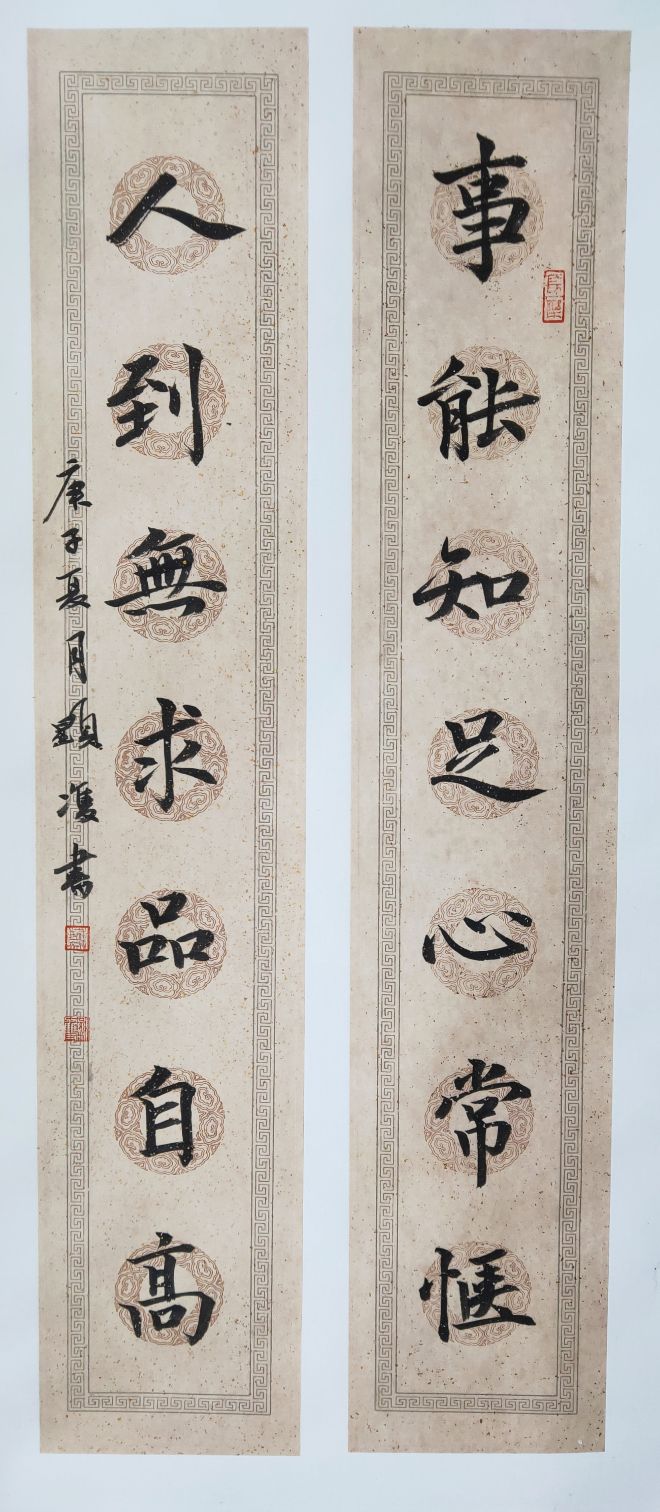 事能知足心常惬
人到無求品自高
庚子夏月顯凌書